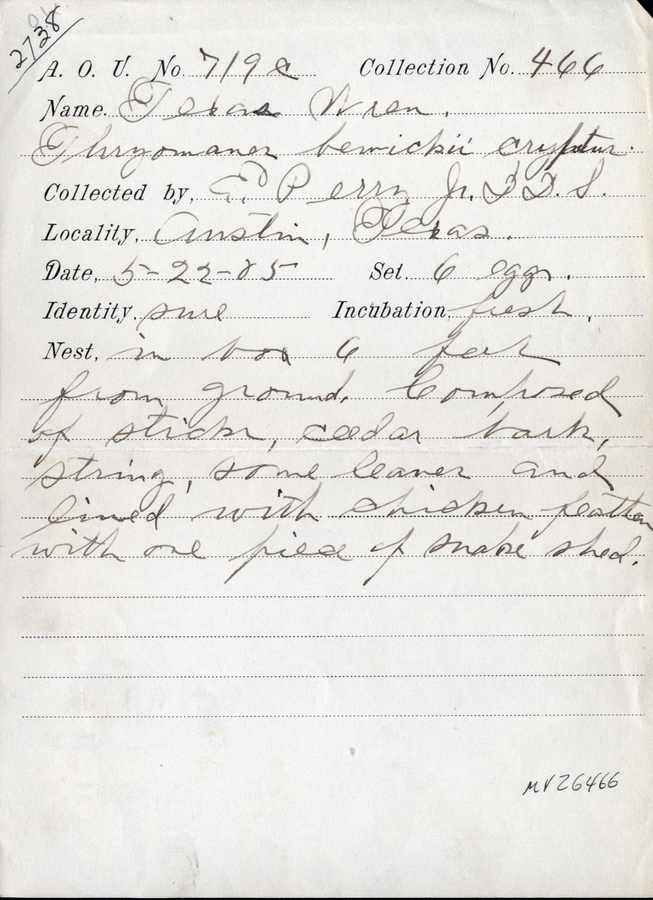 2738
A. O. U. No. 719c Collection No. 466
Name. Texas Wren.
Thryomanes bewickii cryptus.
Collected by, E. P Perry Jr. D.D.S.
Locality, Austin, Texas.
Date, 5-22-85 Set. 6 eggs.
Identity, sure Incubation, fresh.
Nest, in box 6 feet
from ground. Composed
of sticks, cedar bark,
string, some leaves and
lined with chicken feathers
with one piece of snake shed.
MV26466